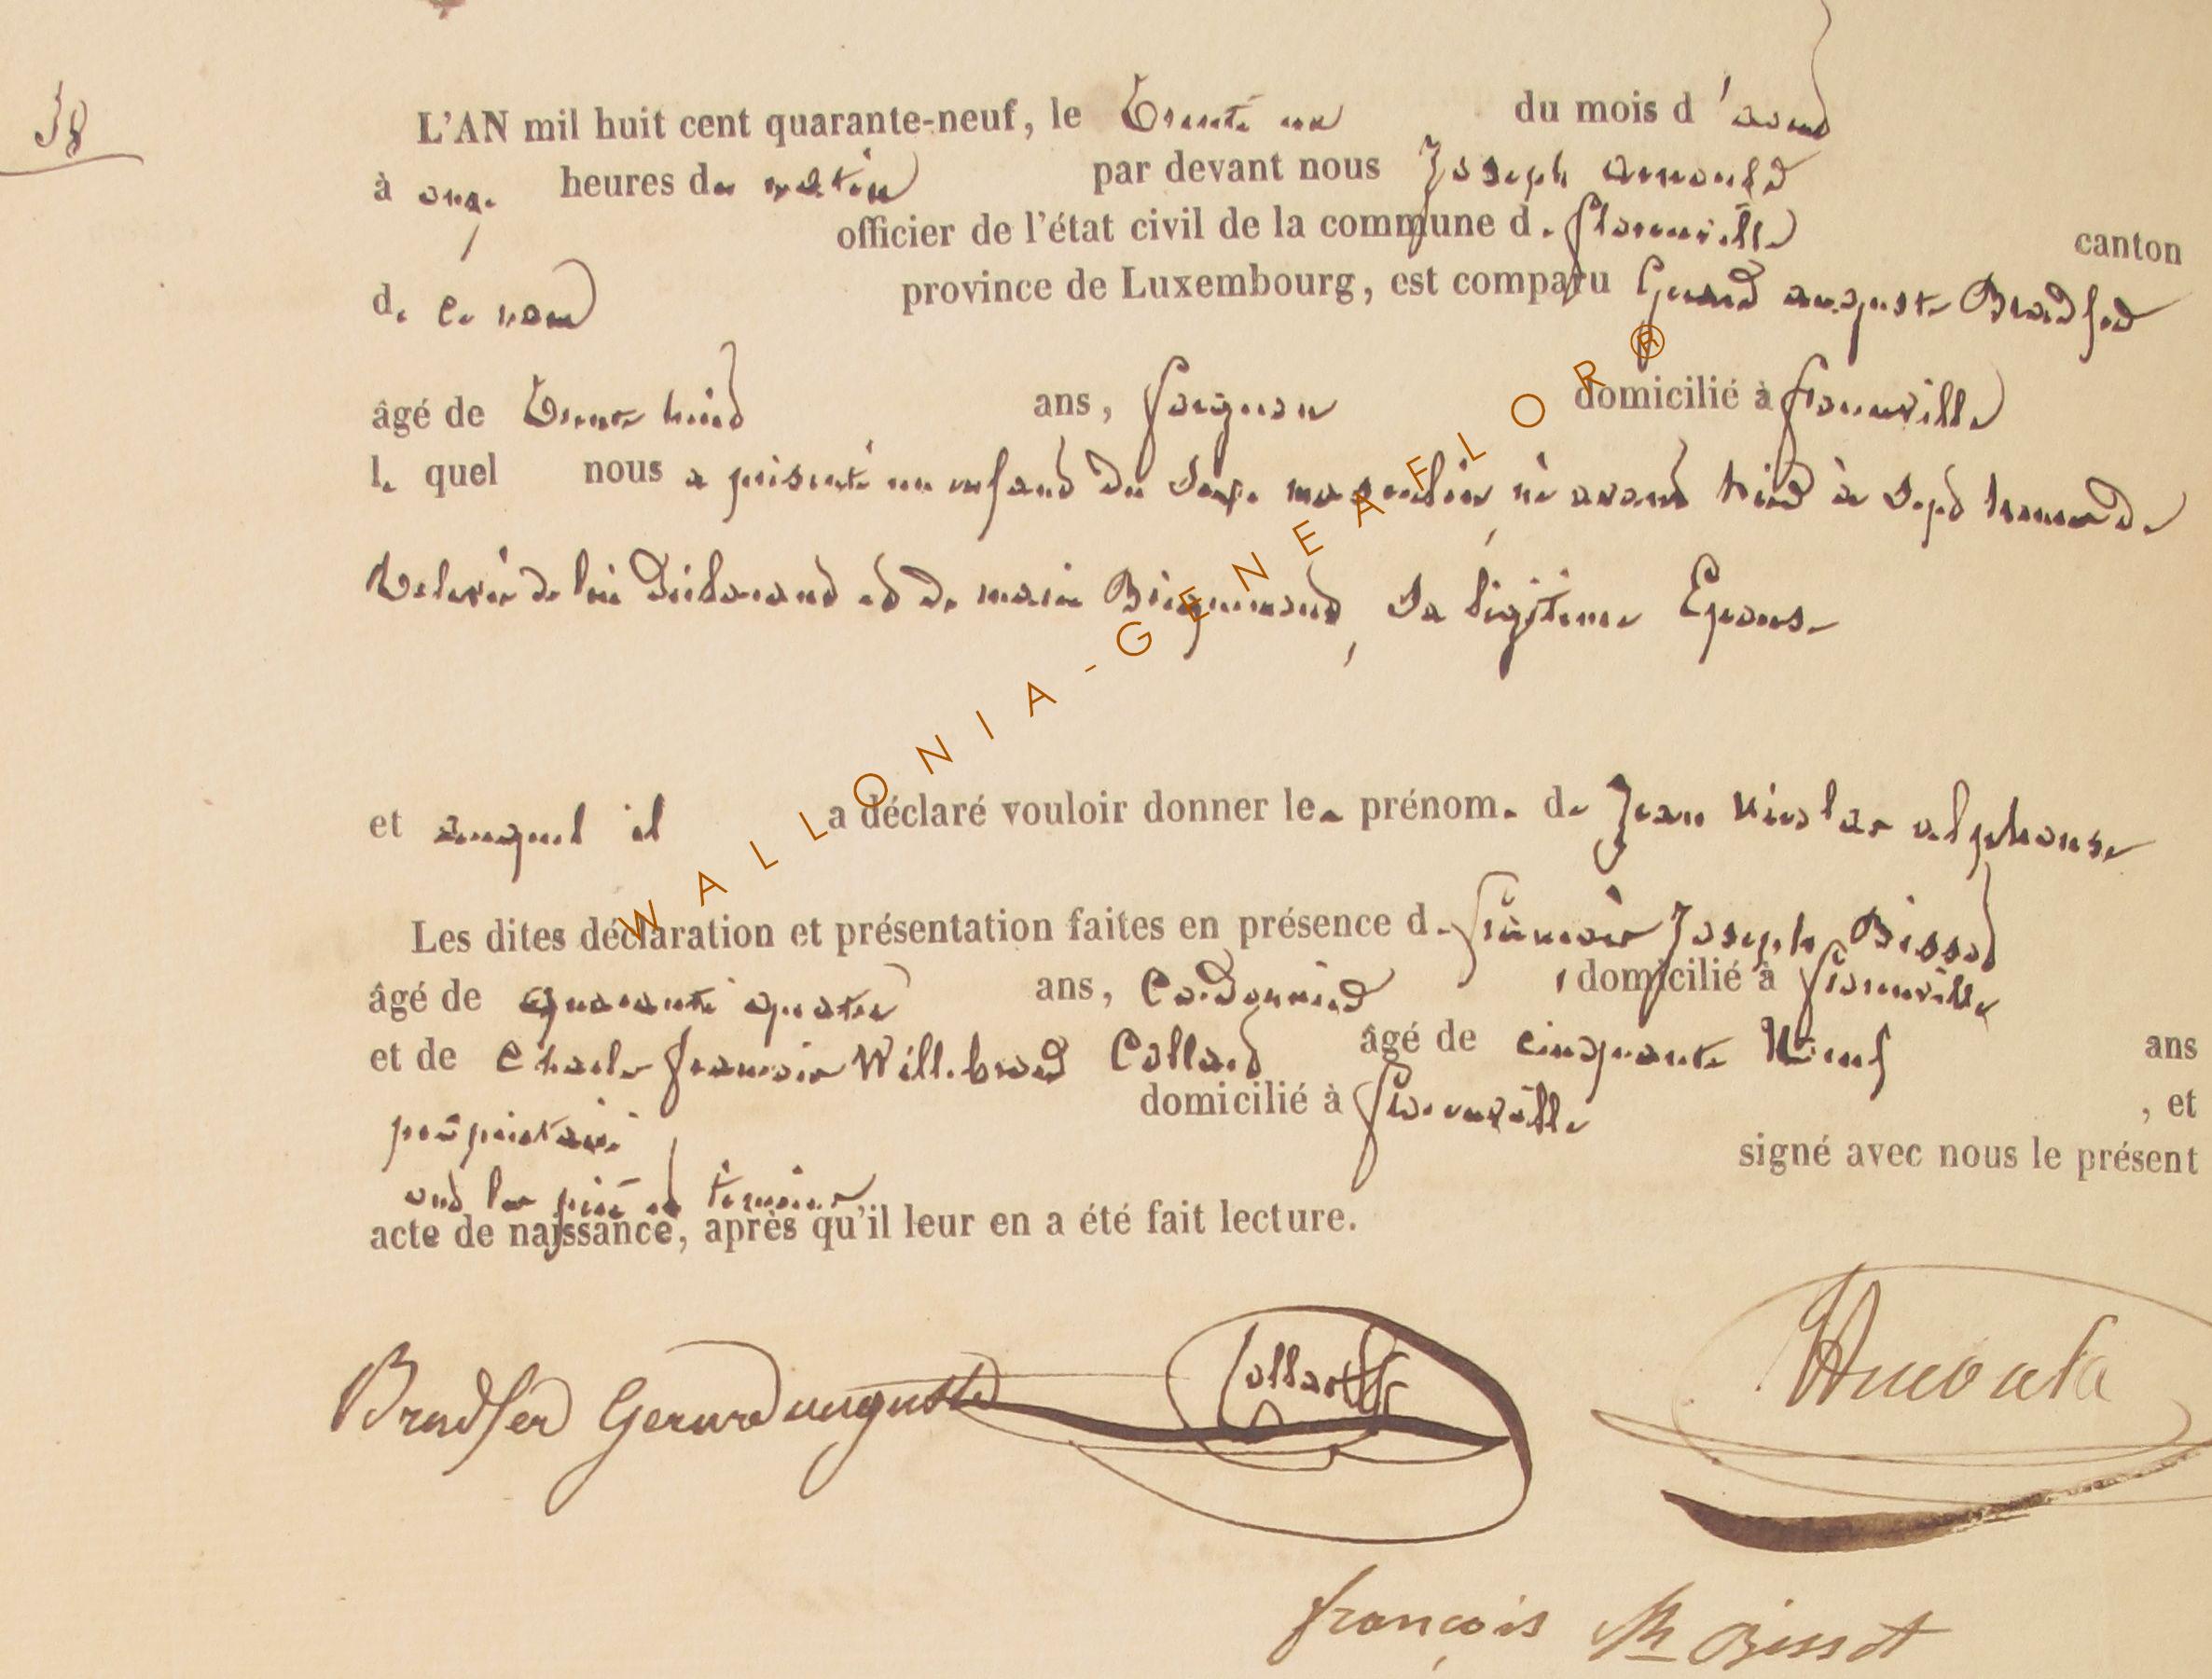 58
L'AN mil huit cent quarante-neuf, le Trente un du mois d'aout
à onze heures du matin par devant nous Joseph arnould
officier de l'état civil de la commune de florenville canton
de ce nom province de Luxembourg, est comparu Gerard auguste Bradfer
âgé de Trente huit ans, domicilié à florenville
le quel nous a présenté un enfant du Sexe masculin, né avant hier à Sept heures de
Relevée de lui Déclarant et de marie, Sa légitime Epouse
et auquel il a déclaré vouloir donner les prénoms de Jean Nicolas alphonse
Les dites déclaration et présentation faites en présence de françois Joseph Bissot
âgé de quarante quatre ans, Cordonnier, domicilié à florenville
et de Charles françois Willebrord Collard âgé de cinquante Neuf ans
propriétaire domicilié à florenville, et
ont les père et témoins signé avec nous le présent
acte de naissance, après qu'il leur en a été fait lecture.
Bradfer Gerard auguste Collard Arnould
françois Jh Bissot
WALLONIA-GENEAFLOR®